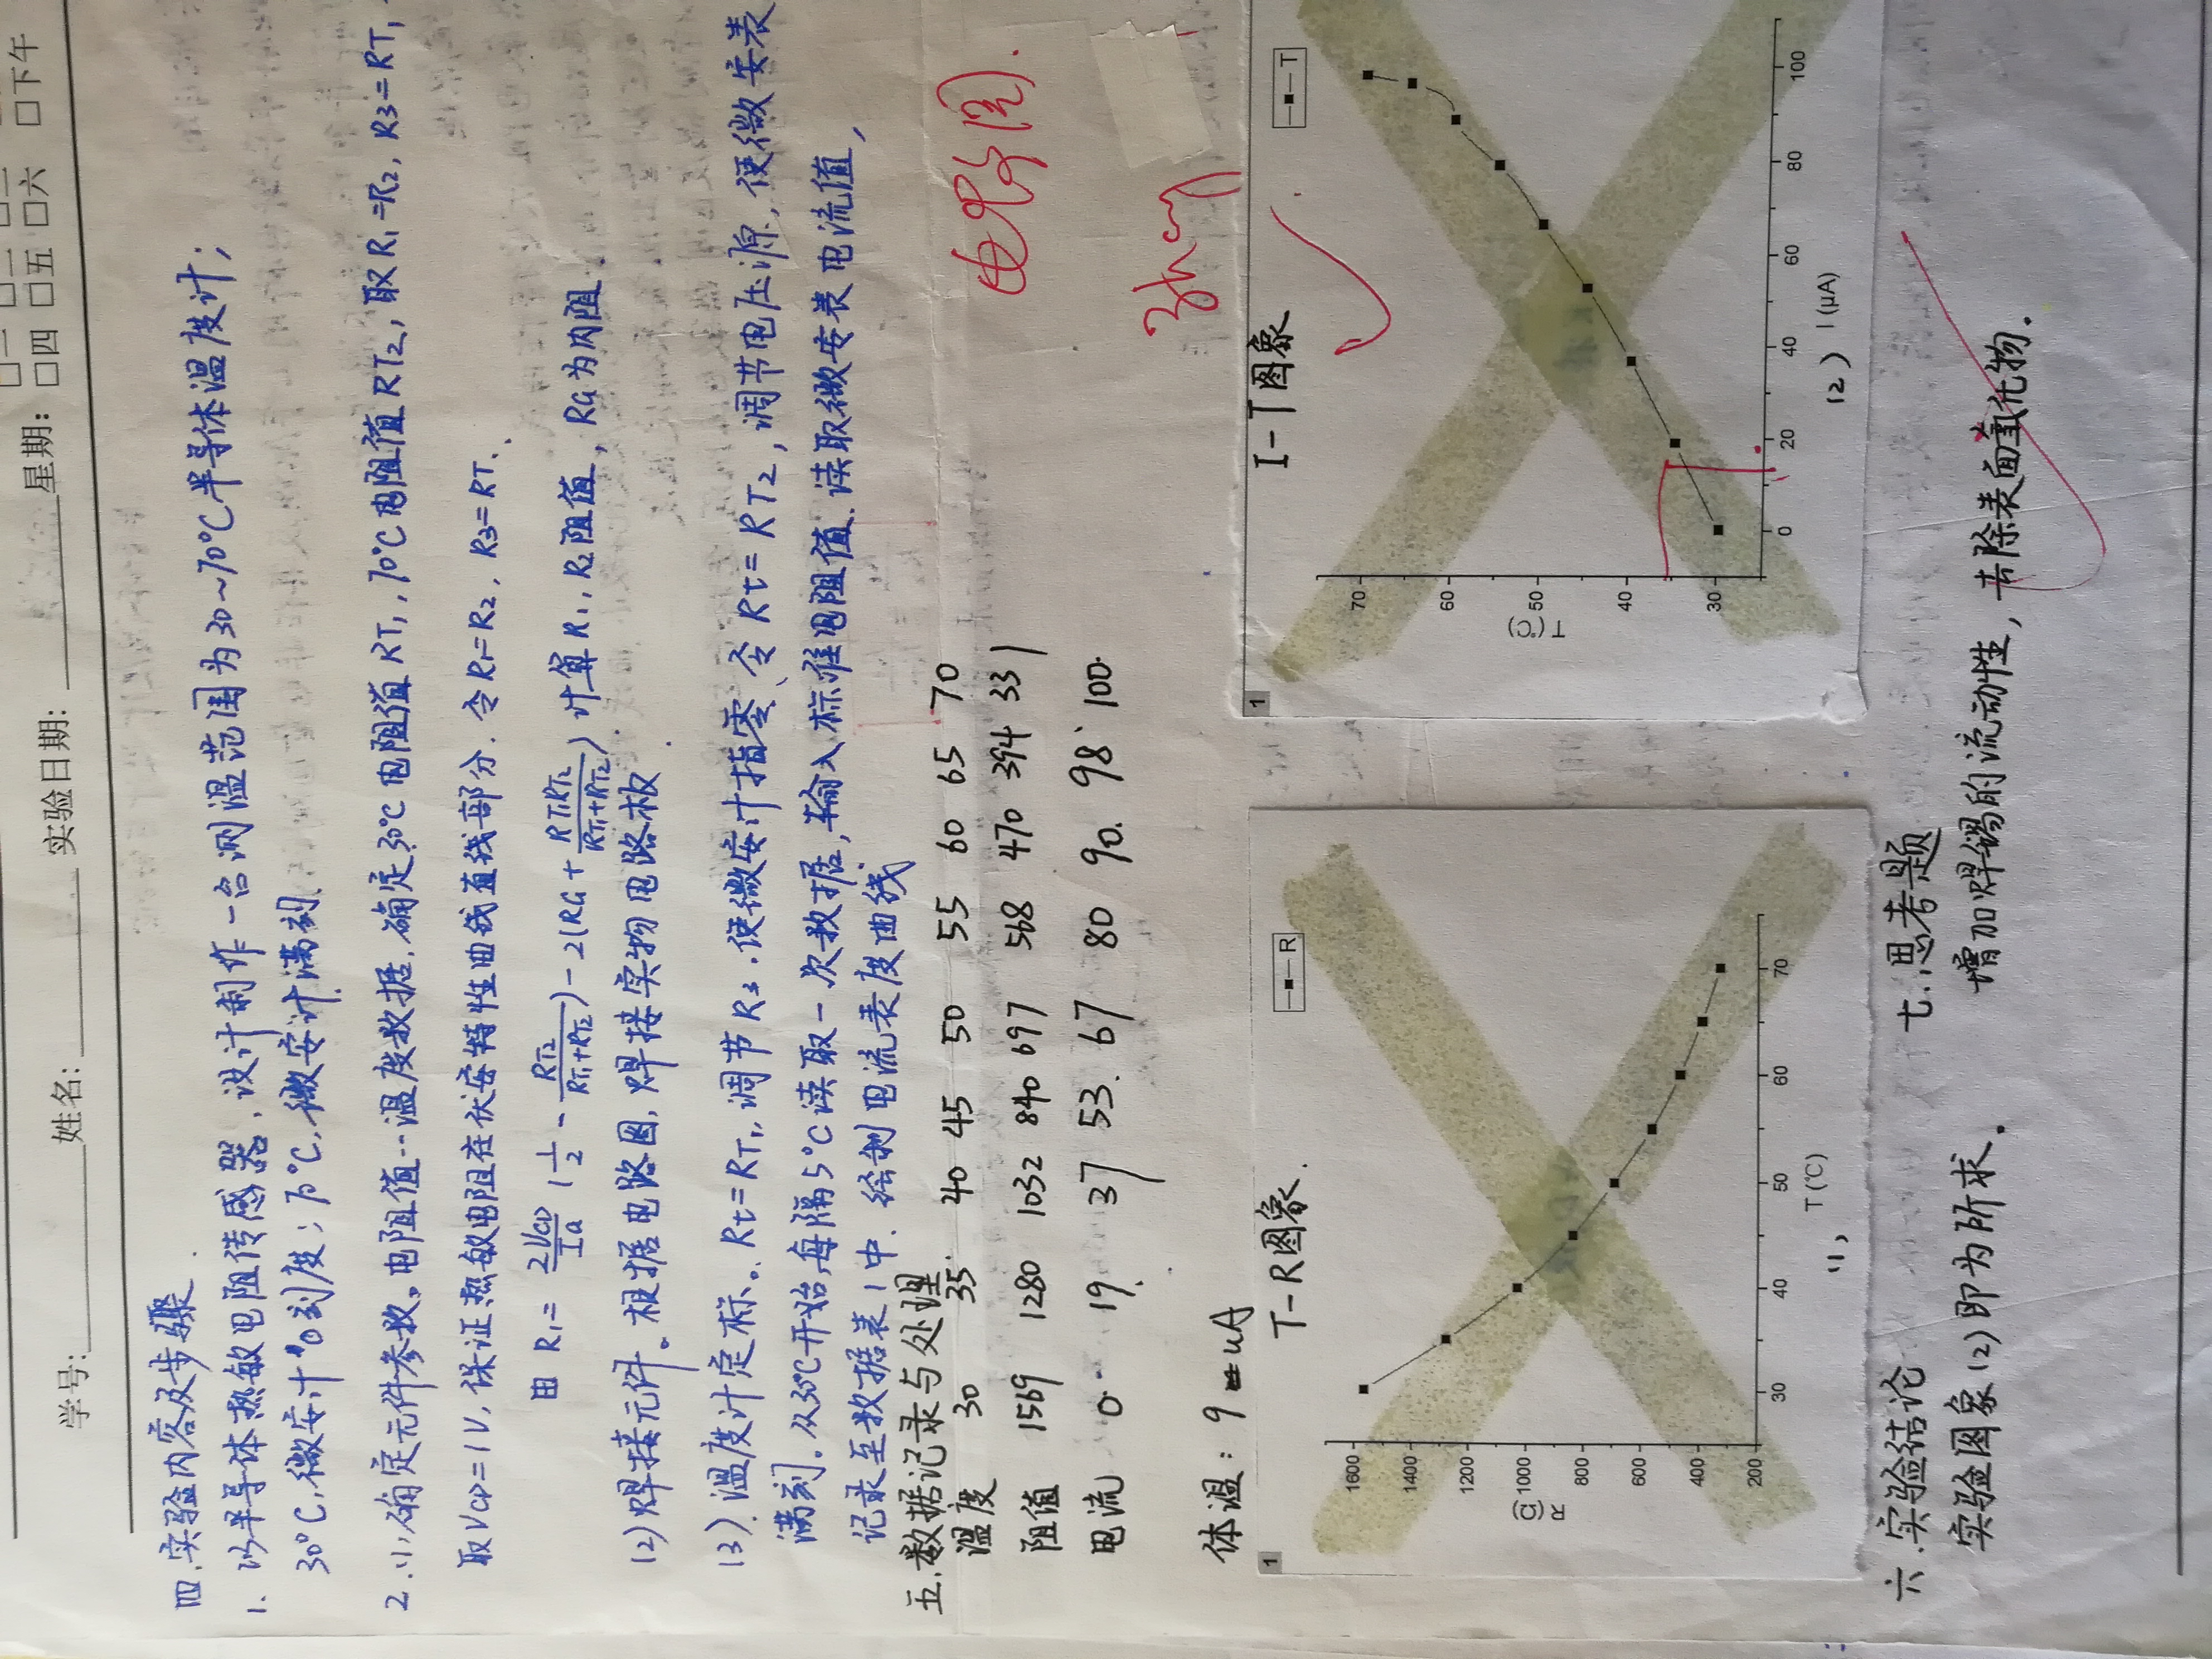 学号: 姓名: 实验日期: 星期: □四 □五 □六 □下午
四.实验内容及步骤.
1. 以半导体热敏电阻传感器,设计制作一台测温范围为30~70°C半导体温度计;
30°C,微安计0刻度;70°C,微安计满刻.
2.(1)确定元件参数。电阻值--温度数据.确定30°C电阻值RT1,70°C电阻值RT2,取R1=R2, R3=RT1
取VCD=1V,保证热敏电阻在伏安特性曲线直线部分.令R1=R2, R3=RT1
由 R1= 2VCD/IG (1/2 - RT2/(RT1+RT2)) - 2(RG + RT1RT2/(RT1+RT2)) 计算R1, R2阻值, RG为内阻.
(2)焊接元件。根据电路图,焊接实物电路板.
(3).温度计定标。Rt=RT1,调节R3.使微安计指零、令Rt=RT2,调节电压源,使微安表
满刻。从30°C开始,每隔5°C读取一次数据,输入标准电阻值.读取微安表电流值,
记录至数据表1中.绘制电流表度曲线
五.数据记录与处理
温度 30 35 40 45 50 55 60 65 70
阻值 1569 1280 1032 840 697 568 470 394 331
电流 0 19 37 53 67 80 90 98 100
电路图.
体温: 9 uA
Zhang
1
T-R图象.
R
1600
1400
1200
1000
800
600
400
200
R (Ω)
30 40 50 60 70
T (℃)
(1)
1
I-T图象
T
70
60
50
40
30
T (℃)
0 20 40 60 80 100
(2) I (μA)
六.实验结论
实验图象(2)即为所求.
七.思考题
增加焊锡的流动性,去除表面氧化物.